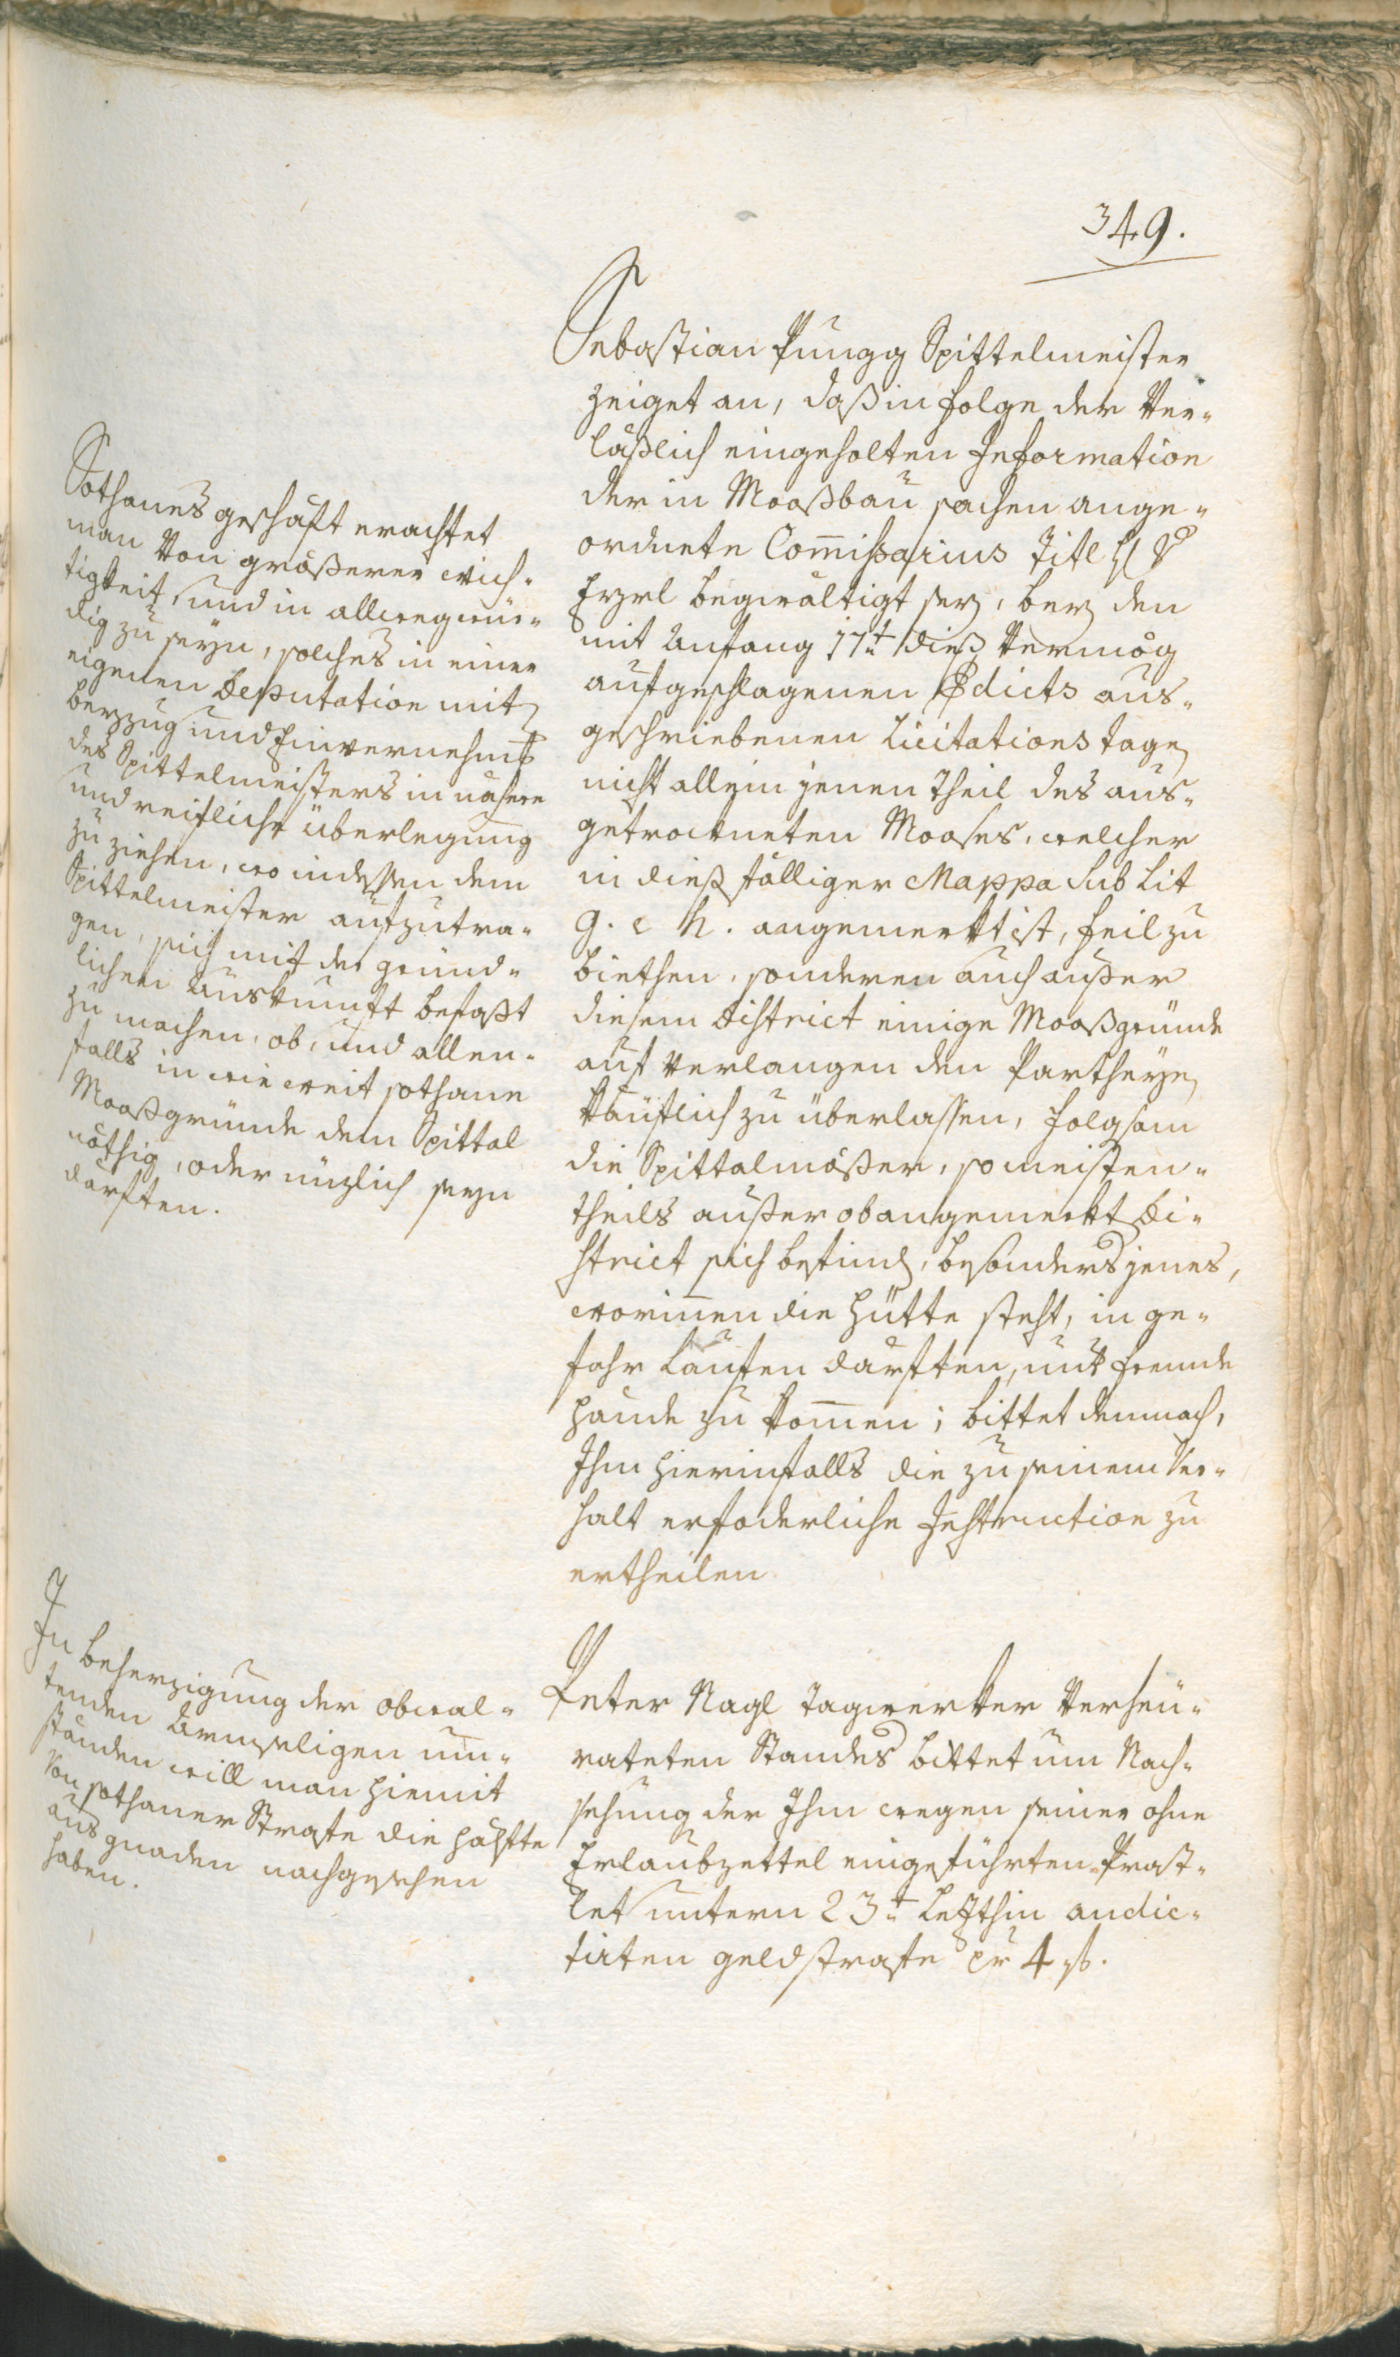 349.
Sebastian Pungg Spittelmeister
zeiget an, daß in folge der Ver-
läßlich eingeholten Information
der in Mooßbau sachen ange-
ordnete Com̄ißarius Titl
begwältigt sey, bey den
mit Anfang 17t dieß Vermög
aufgeschlagenen Edicts aus-
geschriebenen Licitations tage
nicht allein jenen Theil des aus-
getrockneten Mooses, welcher
in dieß fälliger Mappa Sub Lit
g. e h. angemerkt ist, feil zu
biethen, sonderen auch außer
diesem District einige Mooßgründe
auf Verlangen den Partheyen
käuflich zu überlassen, folgsam
die Spittalmößer, so meisten-
theils außer obangemerkt Di-
strict sich befind, besonders jenes,
worinnen die Hütte steht, in ge-
fahr laufen darften, unt fremde
Hände zu kom̄en; bittet demnach,
Ihm hierinfalls die zu seinem Ver-
halt erfoderliche Instruction zu
ertheilen
Sothanes geschäft erachtet
man Von größerer wich-
tigkeit, und in allweg wür-
dig zu seyn, solches in einer
eigenen Deputation mit
beyzug und Einvernehm
des Spittelmeisters in nähere
und reifliche Überlegung
zu ziehen, wo indessen dem
Spittelmeister aufzutra-
gen, sich mit der gründ-
lichen Auskunft befaßt
zu machen, ob, und allen-
falls in wie weit sothane
Mooßgründe dem Spittal
nöthig, oder nüzlich seyn
därften.
Peter Nagl Tagwerker Verheü-
rateten Standes bittet um Nach-
sehung der Ihm wegen seiner ohne
Erlaubzettel eingeführten Prast-
let untern 23t letzthin andic-
tirten geldstrafe pr 4 f.
In Beherzigung der obwal-
tenden Armseligen um-
ständen will man hiemit
Von sothaner Strafe die Hälfte
aus gnaden nachgesehen
haben.